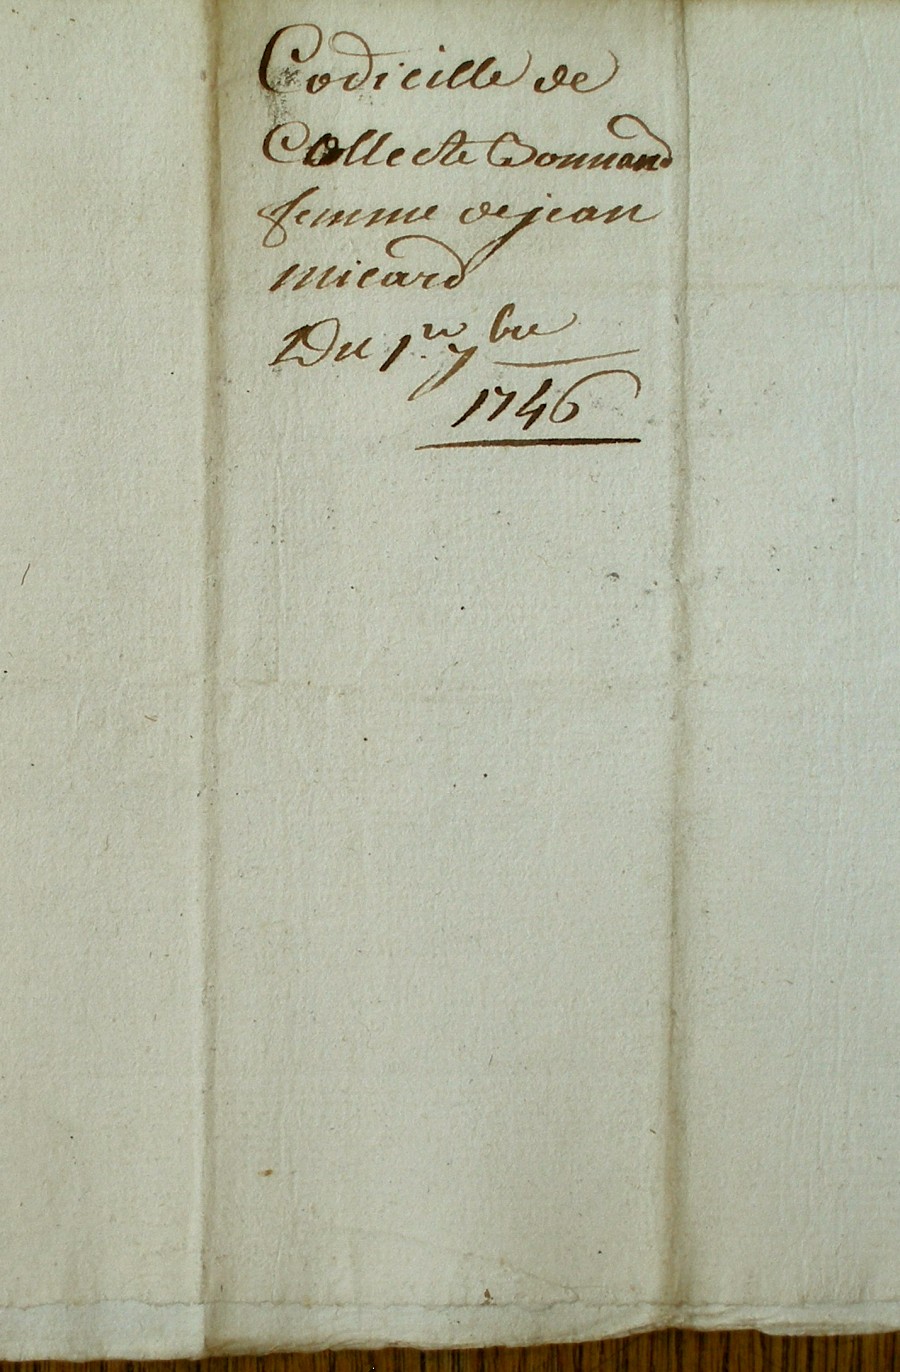 Codicille de
Collecte Bonnard
femme de jean
micard
Du 1.er 7bre
1746